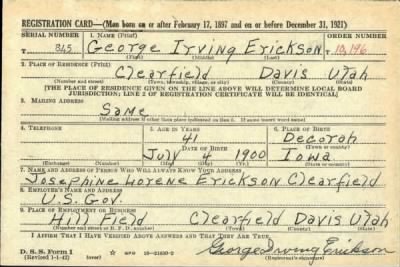 REGISTRATION CARD—(Men born on or after February 17, 1897 and on or before December 31, 1921)
SERIAL NUMBER 1. NAME (Print) ORDER NUMBER
345 George Irving Erickson 10,196
2. PLACE OF RESIDENCE (Print)
Clearfield Davis Utah
(Number and street) (Town, township, village, or city) (County) (State)
[THE PLACE OF RESIDENCE GIVEN ON THE LINE ABOVE WILL DETERMINE LOCAL BOARD
JURISDICTION; LINE 2 OF REGISTRATION CERTIFICATE WILL BE IDENTICAL]
3. MAILING ADDRESS
Same
[Mailing address if other than place indicated on line 2. If same insert word same]
4. TELEPHONE 5. AGE IN YEARS 6. PLACE OF BIRTH
41 Decorah
DATE OF BIRTH
July 4 1900 Iowa
(Exchange) (Number) (Mo.) (Day) (Yr.) (State or country)
7. NAME AND ADDRESS OF PERSON WHO WILL ALWAYS KNOW YOUR ADDRESS
Josephine Lorene Erickson Clearfield
8. EMPLOYER'S NAME AND ADDRESS
U.S. Gov.
9. PLACE OF EMPLOYMENT OR BUSINESS
Hill Field Clearfield Davis Utah
(Number and street or R. F. D. number) (Town) (County) (State)
I AFFIRM THAT I HAVE VERIFIED ABOVE ANSWERS AND THAT THEY ARE TRUE.
D. S. S. Form 1
(Revised 1-1-42) GPO 16—21630-2 George Irving Erickson